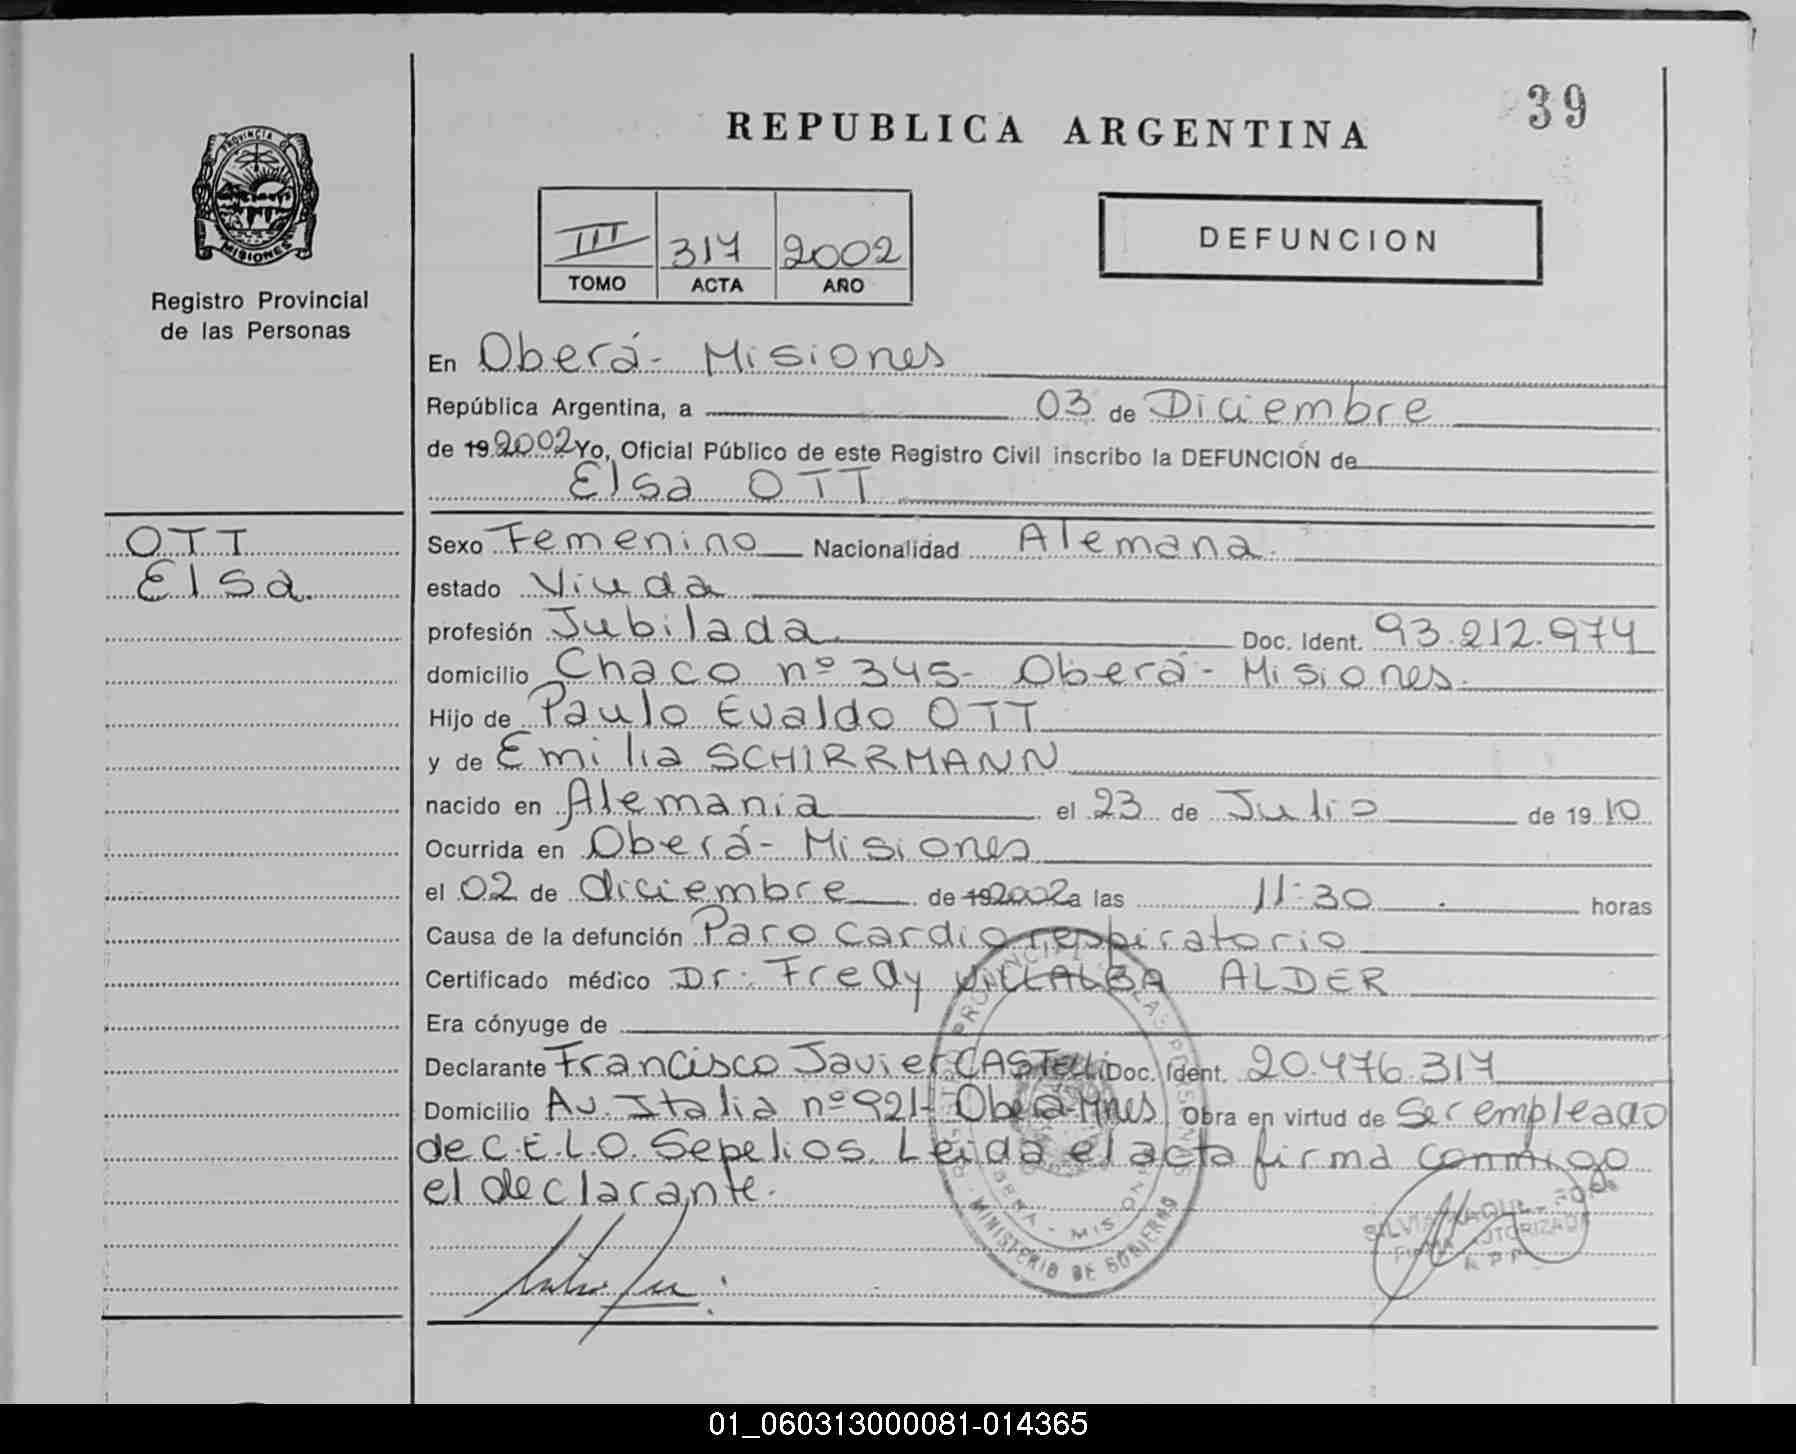 39
REPUBLICA ARGENTINA
PROVINCIA DE
MISIONES
Registro Provincial
de las Personas
III 317 2002
TOMO ACTA AÑO
DEFUNCION
En Oberá - Misiones
República Argentina, a 03 de Diciembre
de 19 2002 Yo, Oficial Público de este Registro Civil inscribo la DEFUNCION de
Elsa OTT
OTT
Elsa.
Sexo Femenino Nacionalidad Alemana.
estado Viuda
profesión Jubilada. Doc. Ident. 93.212.974
domicilio Chaco nº 345- Oberá - Misiones.
Hijo de Paulo Evaldo OTT
y de Emilia SCHIRRMANN
nacido en Alemania el 23 de Julio de 19 10
Ocurrida en Oberá - Misiones
el 02 de diciembre de 19 2002 a las 11:30 horas
Causa de la defunción Paro cardiorespiratorio
Certificado médico Dr: Fredy VILLALBA ALDER
Era cónyuge de
Declarante Francisco Javier CASTELLI Doc. Ident. 20.476.317
Domicilio Av. Italia nº 921- Oberá-Mnes Obra en virtud de Ser empleado
de C.E.L.O. Sepelios. Leida el acta firma conmigo
el declarante.
MINISTERIO DE GOBIERNO
01_060313000081-014365